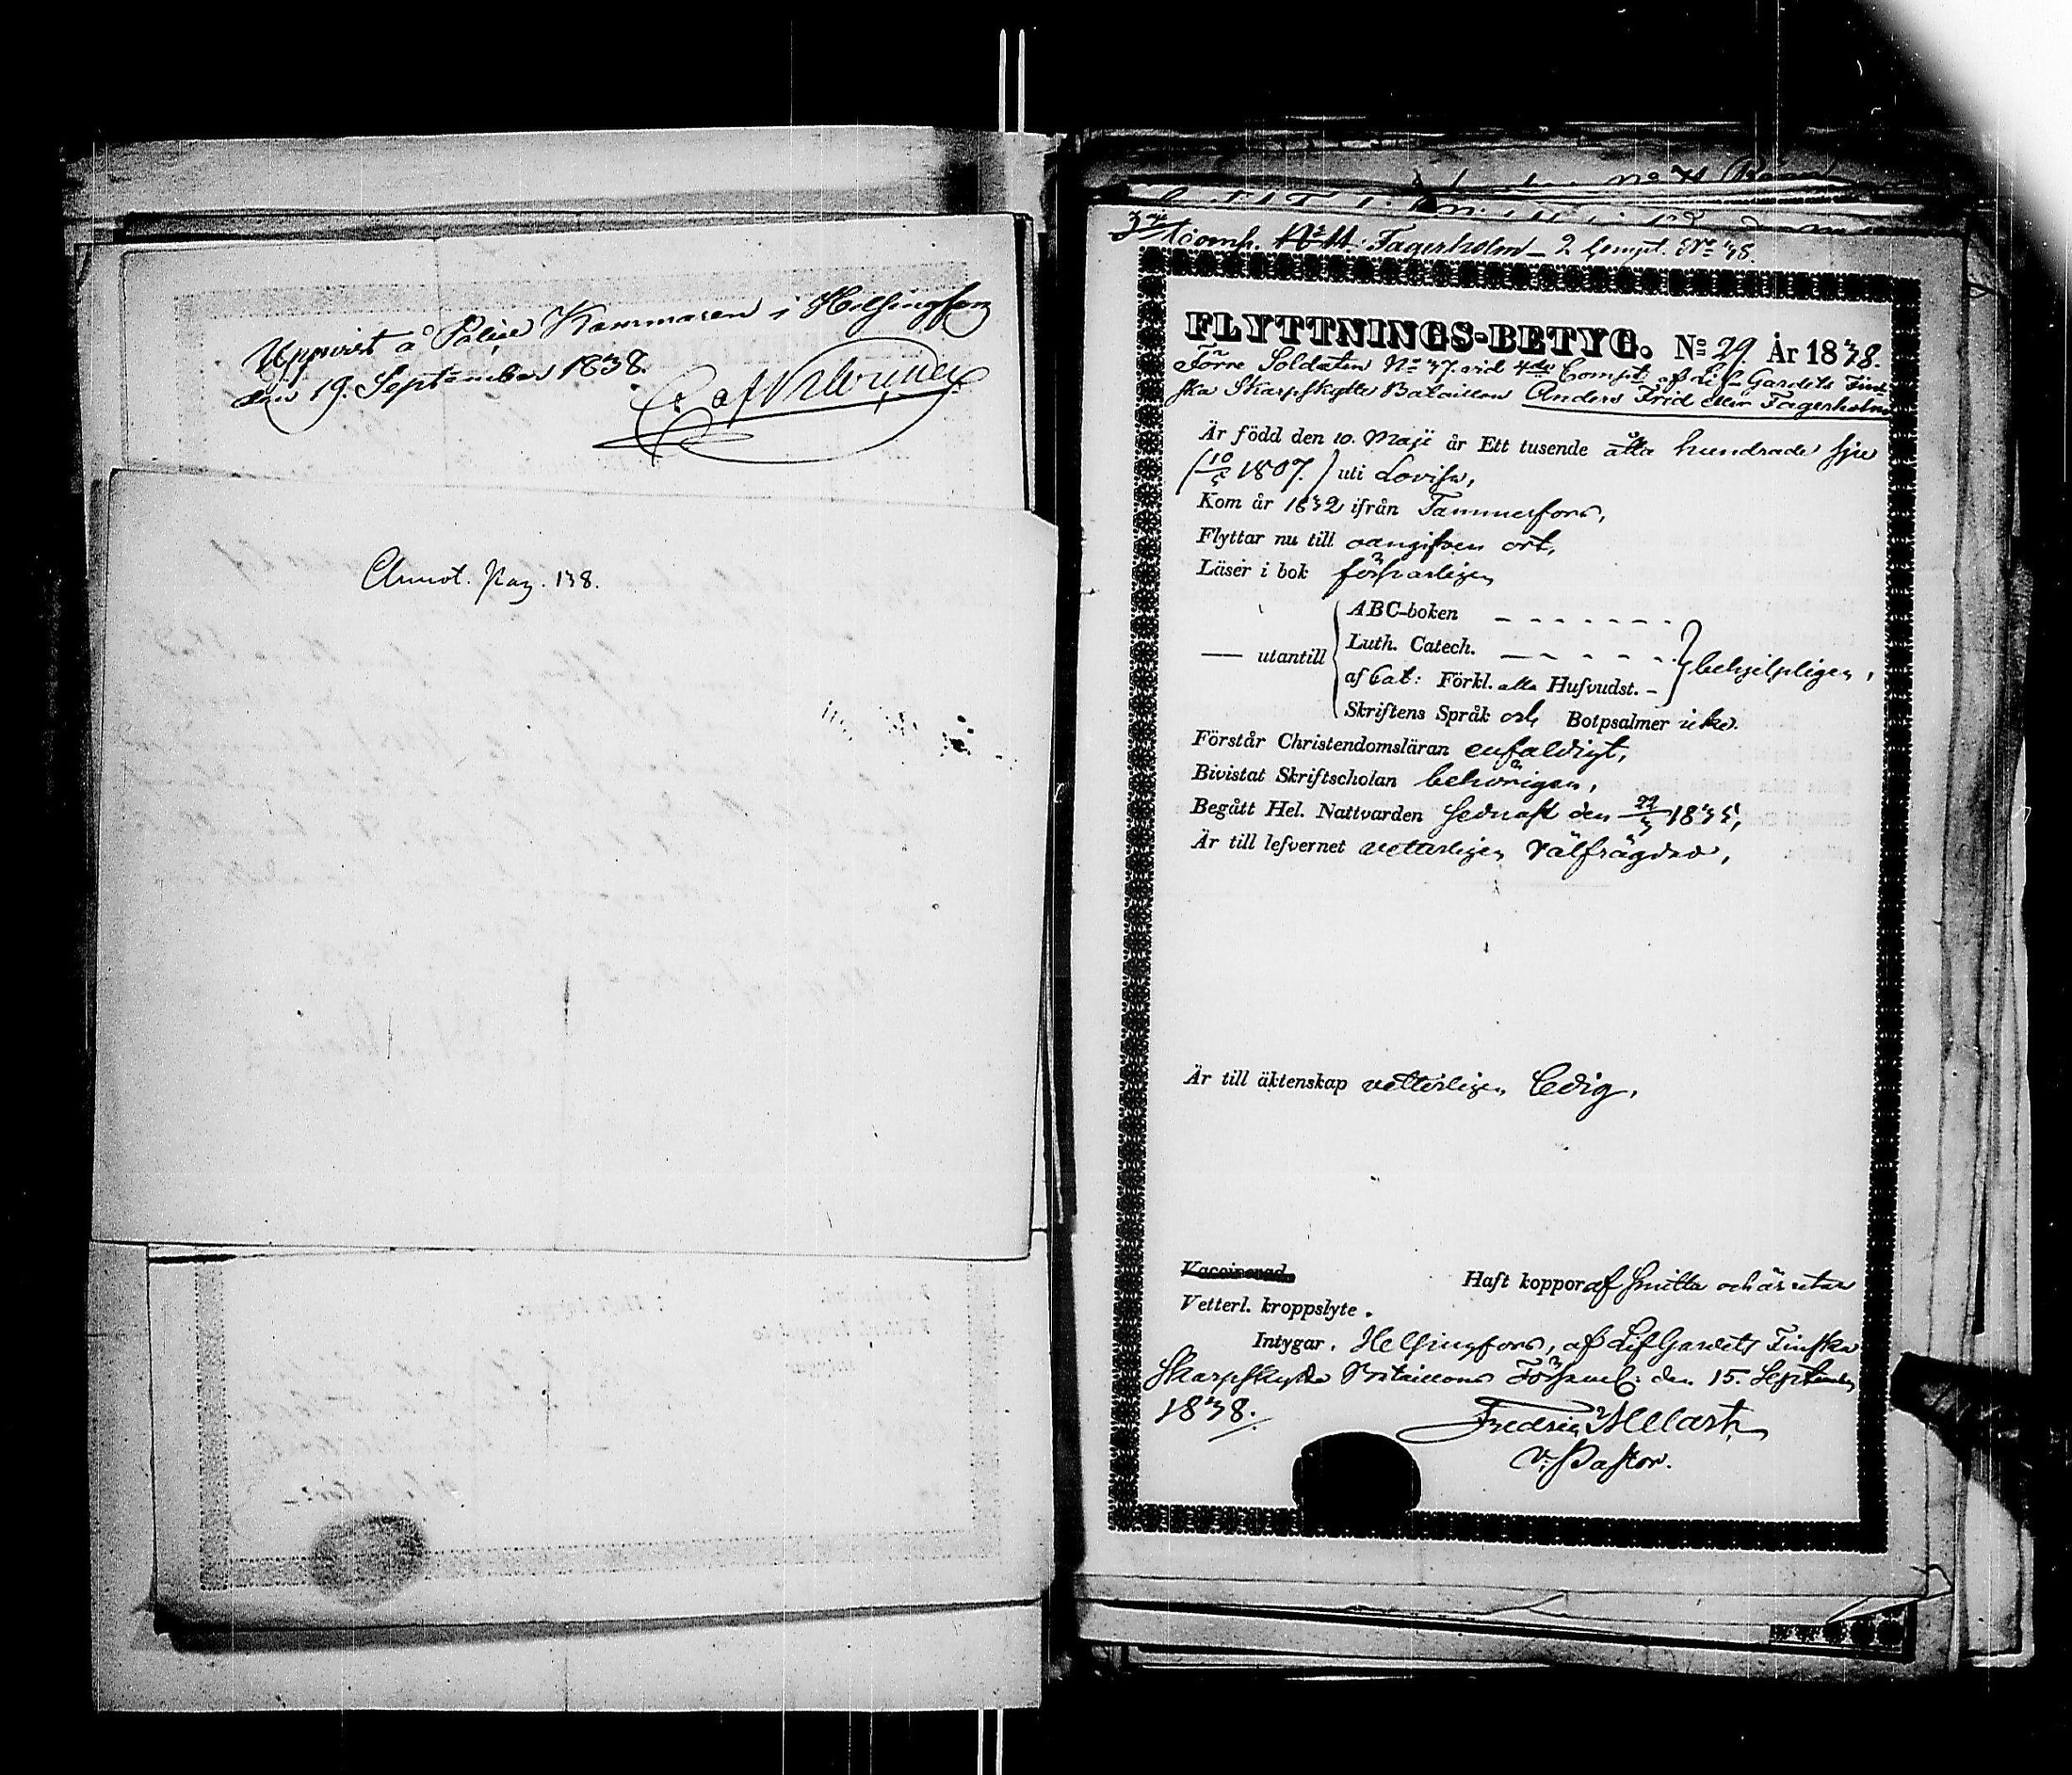 Uppvist å Polise Kammaren i Helsingfors
den 19. September 1838.
Annot. Pag. 138.
Comp. No 11. Fagerholm – 2 Compt. No 38.
FLYTTNINGS-BETYG. No 29. År 1838.
Förre Soldaten No 37. vid 4de Compt. af Lif-Gardets Fin-
ska Skarpskytte Bataillon Anders Frid eller Fagerholm
Är född den 10. Maji år Ett tusende åtta hundrade sju
(10/5 1807.) uti Lovisa,
Kom år 1832 ifrån Tammerfors,
Flyttar nu till oangifven ort,
Läser i bok försvarligen
ABC-boken
— utantill Luth. Catech. behjelpligen,
af Cat: Förkl. alla Hufvudst. –
Skriftens Språk och Botpsalmer icke.
Förstår Christendomsläran enfaldigt,
Bivistat Skriftscholan behörigen,
Begått Hel. Nattvarden sednast den 22/3 1835,
Är till lefvernet vetterligen välfrägdad,
Är till äktenskap vetterligen ledig.
Vaccinerad Haft koppor af smitta och är utan
Vetterl. kroppslyte.
Intygar. Helsingfors, af Lif Gardets Finska
Skarpskytte Bataillons Församl: den 15. September
1838.
Fredric
V. Pastor.